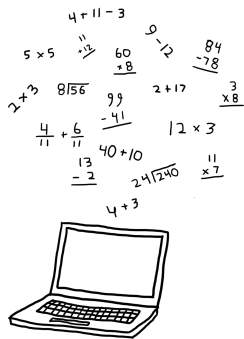 4 + 11 - 3
5 × 5
11
+ 12
60
× 8
9 - 12
84
- 78
2 × 3
8)56
99
- 41
2 + 17
3
× 8
4/11 + 6/11
12 × 3
40 + 10
13
- 2
24)240
11
× 7
4 + 3